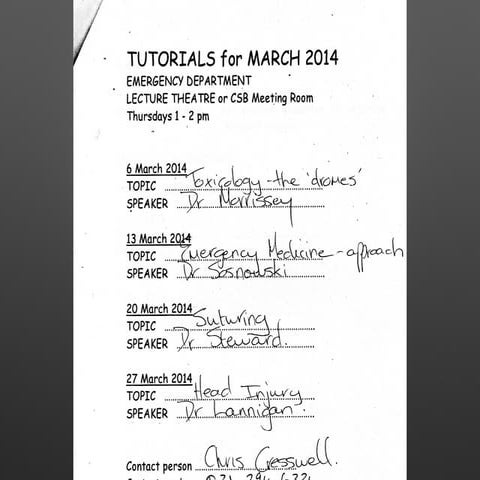 TUTORIALS for MARCH 2014
EMERGENCY DEPARTMENT
LECTURE THEATRE or CSB Meeting Room
Thursdays 1 - 2 pm
6 March 2014
TOPIC Toxicology - the 'dromes'
SPEAKER Dr Morrissey
13 March 2014
TOPIC Emergency Medicine - approach
SPEAKER Dr Sosnowski
20 March 2014
TOPIC Suturing
SPEAKER Dr Steward.
27 March 2014
TOPIC Head Injury
SPEAKER Dr Lannigan.
Contact person Chris Cresswell.